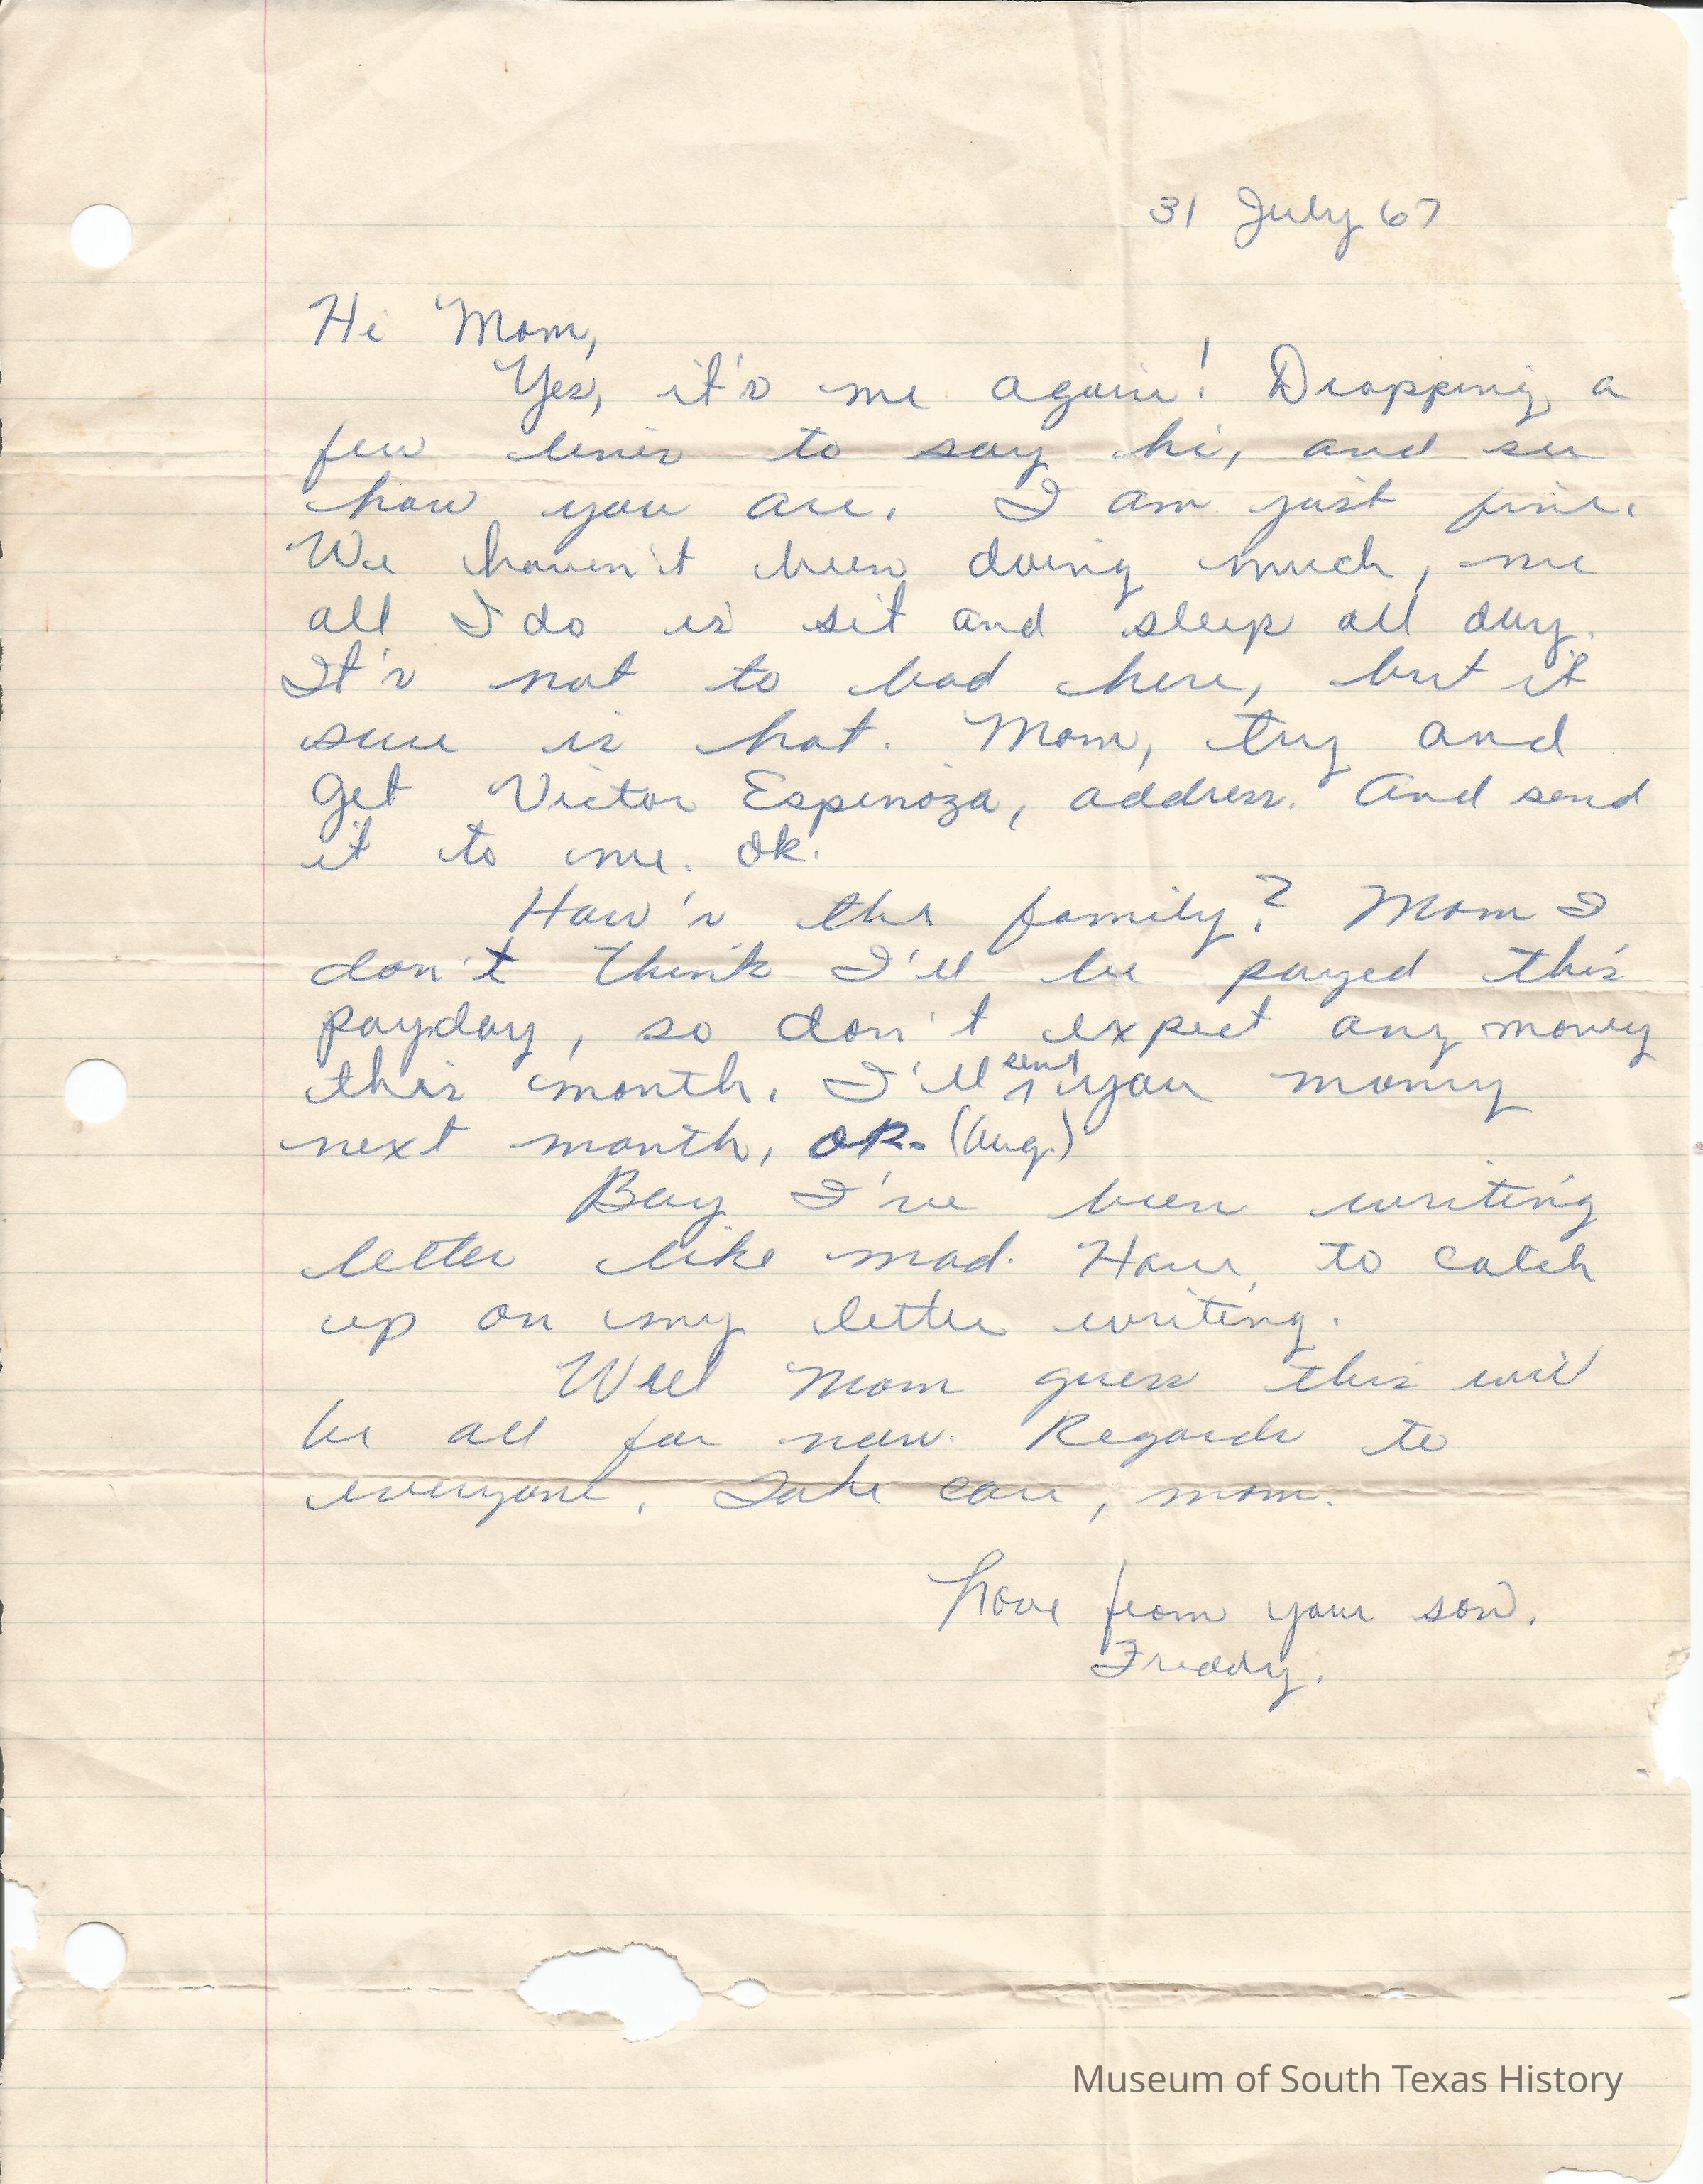 31 July 67
Hi Mom,
Yes, it's me again! Dropping a
few lines to say hi, and see
how you are. I am just fine.
We haven't been doing much, me
all I do is sit and sleep all day.
It's not to bad here, but it
sure is hot. Mom, try and
get Victor Espinoza, address. And send
it to me. Ok.
How's the family? Mom I
don't think I'll be payed this
payday, so don't expect any money
this month. I'll sent you money
next month, OK. (Aug.)
Boy I've been writing
letter like mad. Have to catch
up on my letter writing.
Well Mom guess this will
be all for now. Regards to
everyone. Take care, mom.
Love from your son.
Freddy.
Museum of South Texas History